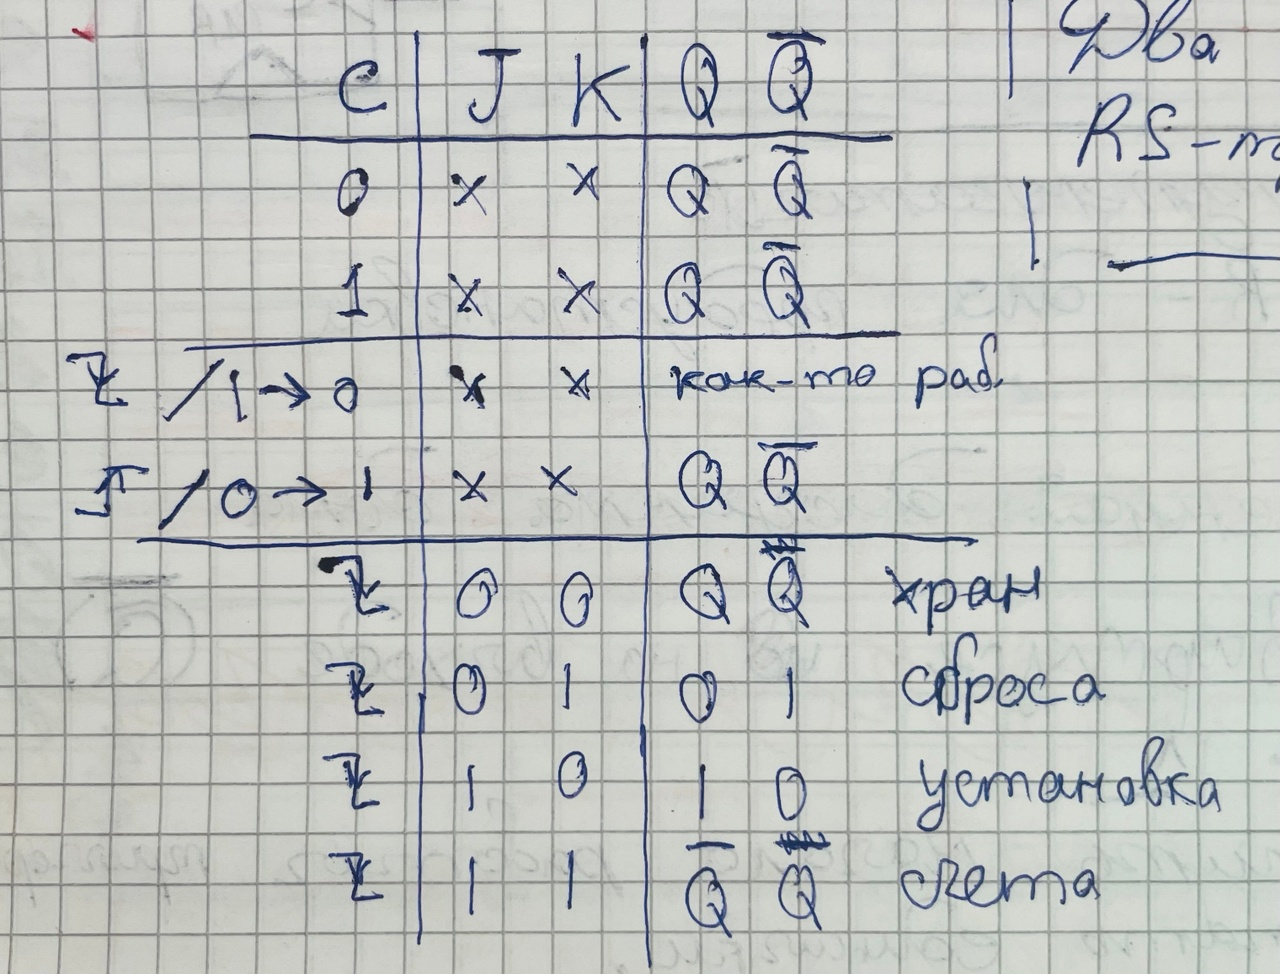 C J K Q Q̅
0 x x Q Q̅
1 x x Q Q̅
/ 1 → 0 x x как-то раб.
/ 0 → 1 x x Q Q̅
0 0 Q Q̅ хран
0 1 0 1 сброса
1 0 1 0 установка
1 1 Q̅ Q счета
Два
RS-т